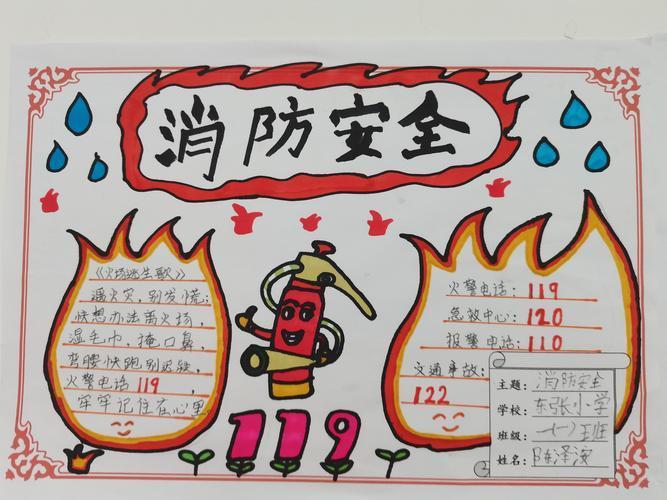 消防安全
《火场逃生歌》
遇火灾,别发慌;
快想办法离火场,
湿毛巾,掩口鼻,
弯腰快跑别迟疑,
火警电话119,
牢牢记住在心里
119
火警电话:119
急救中心:120
报警电话:110
交通事故:
122
主题:消防安全
学校:东张小学
班级:一(一)班
姓名:陈泽